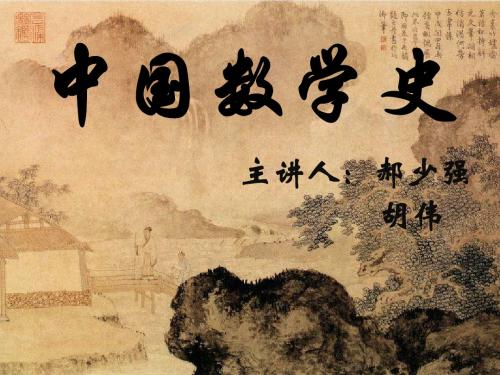 中国数学史
主讲人：郝少强
胡伟